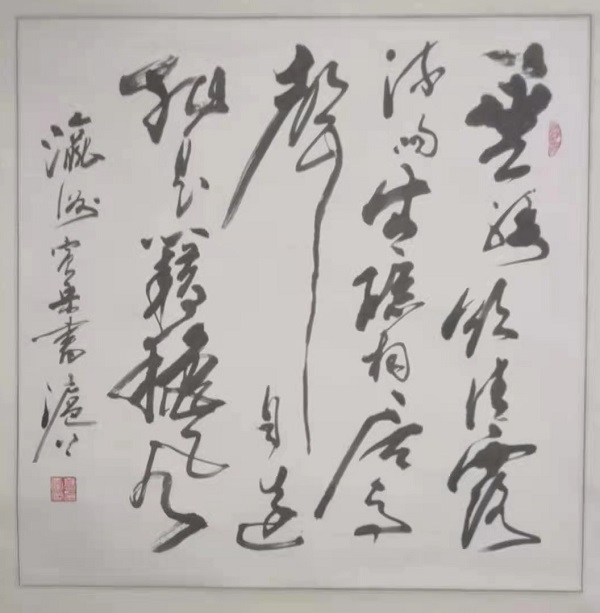 垂緌飲清露
流响出疏桐居高
聲自遠
非是藉穐風
瀛洲書滬上